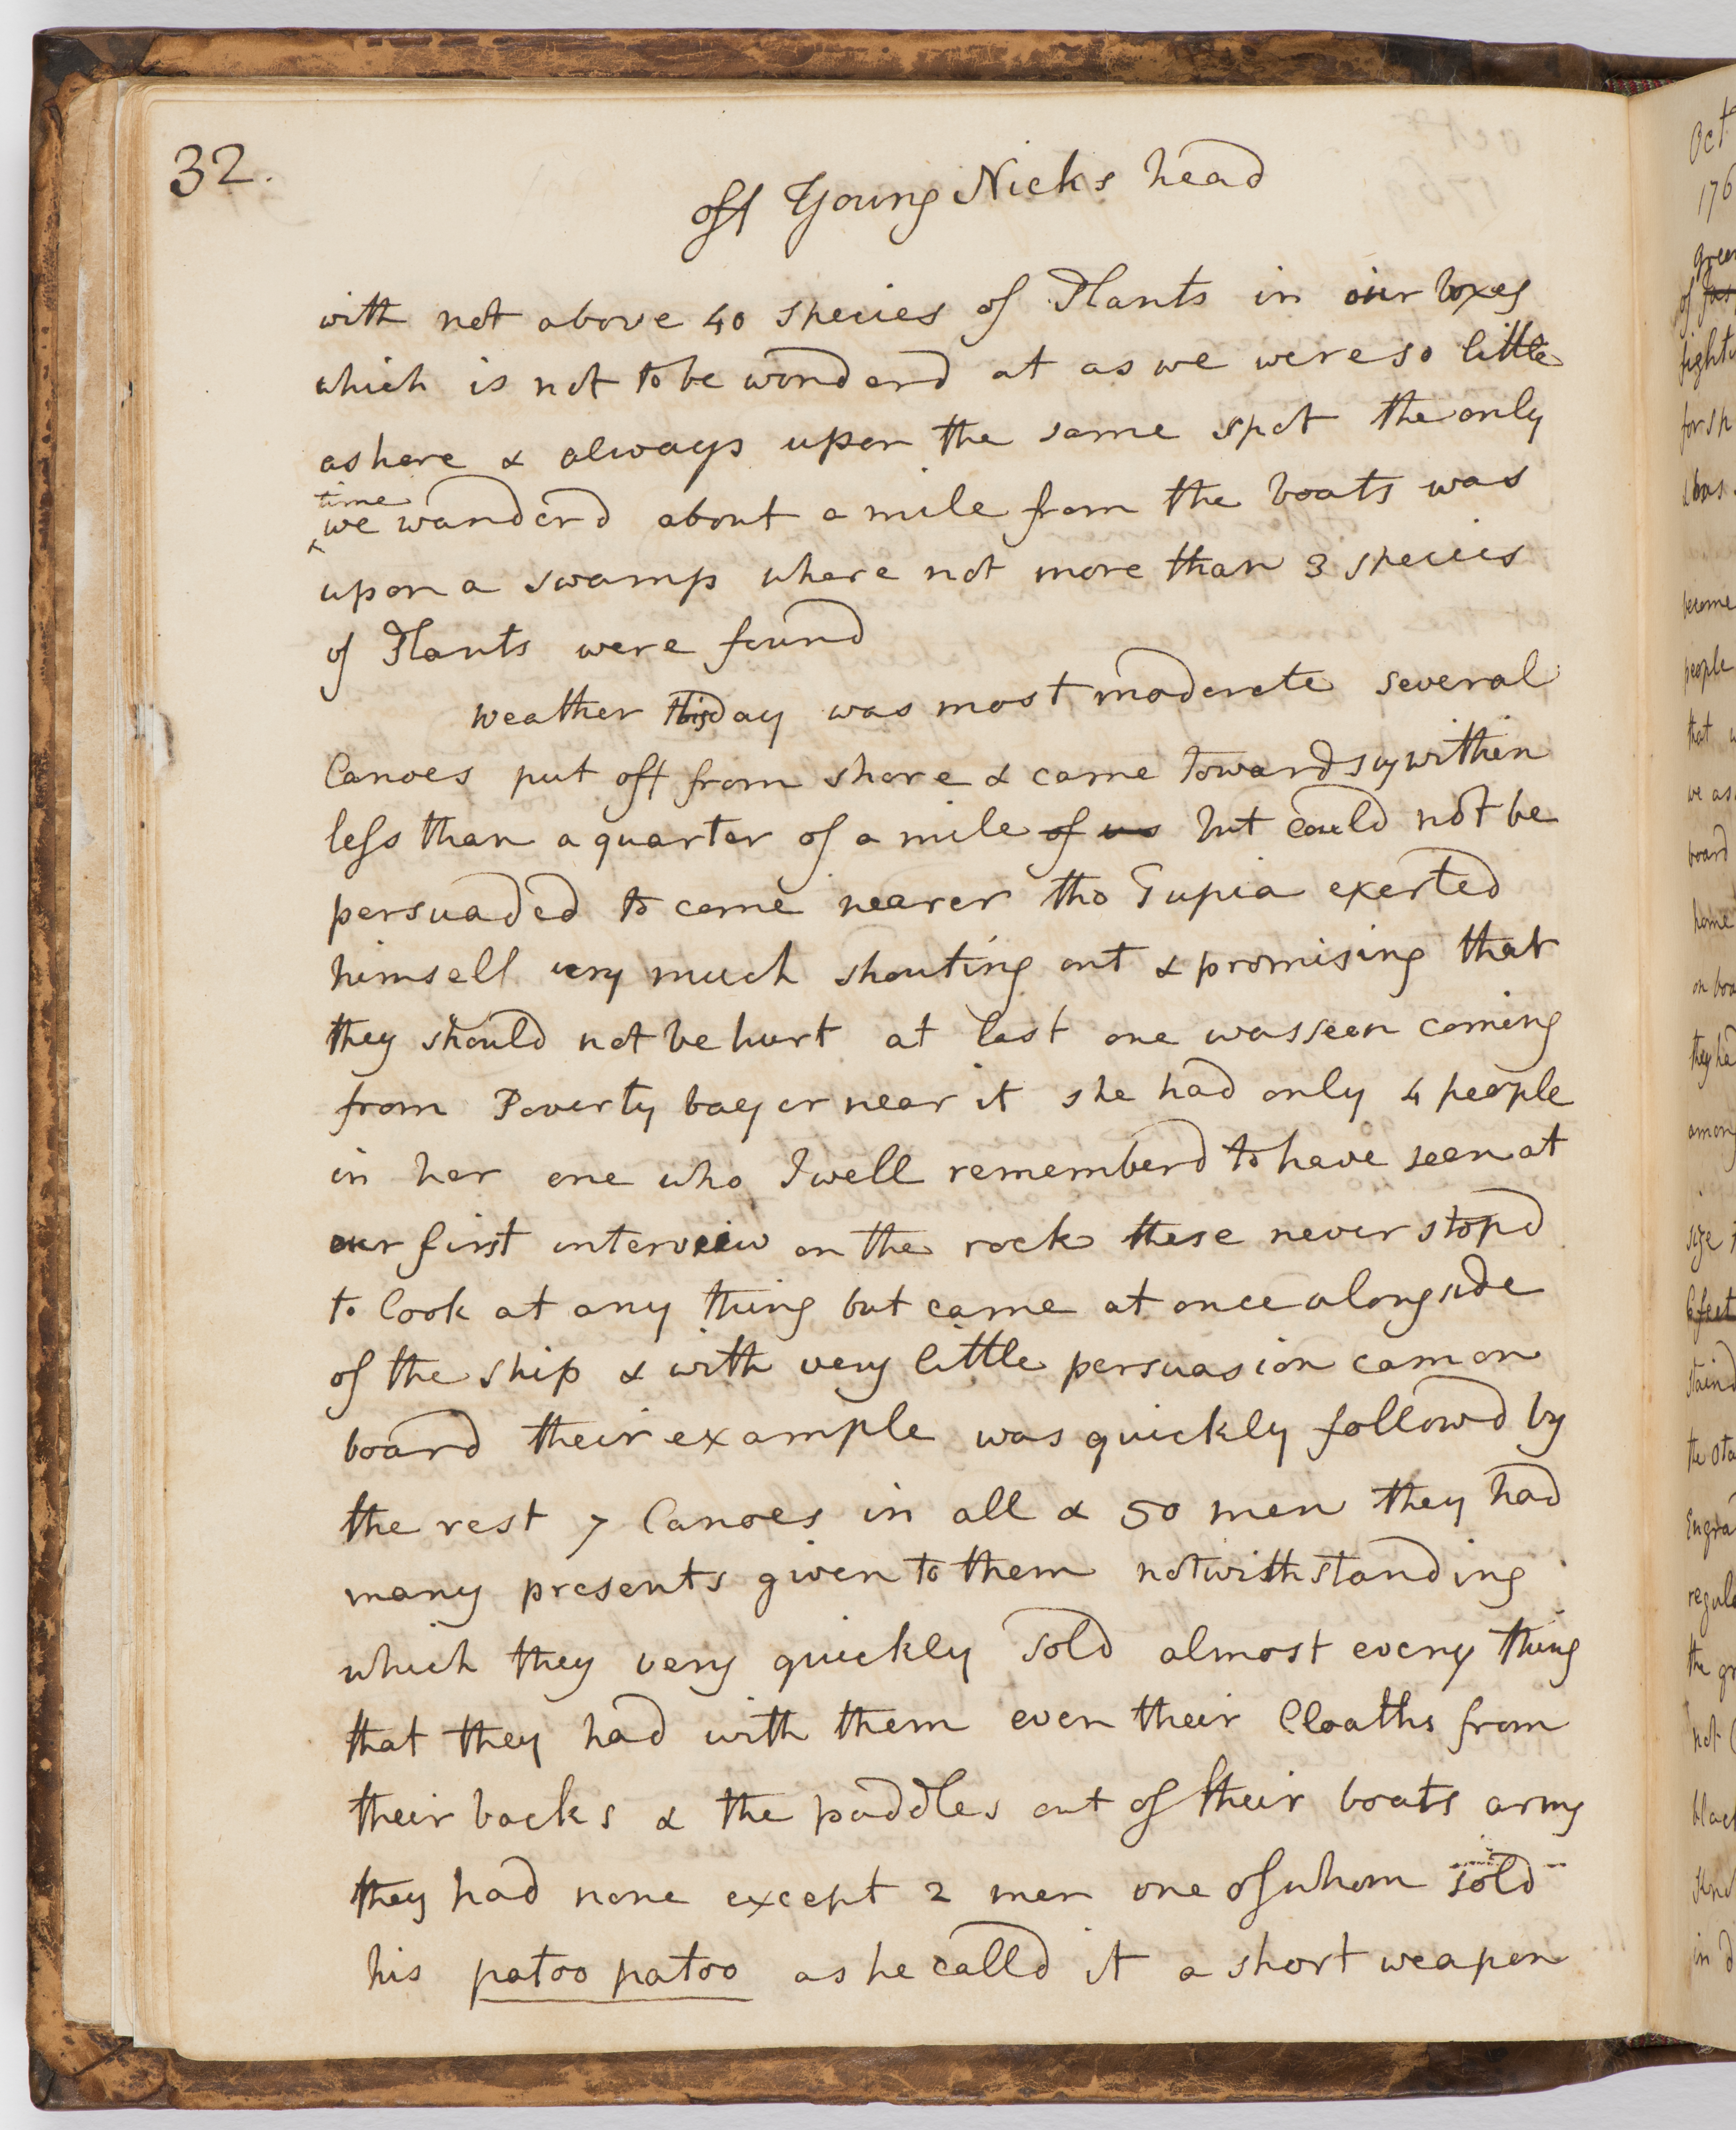 32.
off Young Nicks head
with not above 40 species of Plants in our boxes
which is not to be wonderd at as we were so little
ashore & always upon the same spot the only
time
we wanderd about a mile from the boats was
upon a swamp where not more than 3 species
of Plants were found
weather this day was most moderate several
Canoes put off from shore & came towards us within
less than a quarter of a mile of us but could not be
persuaded to come nearer tho Tupia exerted
himself very much shouting out & promising that
they should not be hurt at last one was seen coming
from Poverty bay or near it she had only 4 people
in her one who I well rememberd to have seen at
our first interveiw on the rock these never stopd
to look at any thing but came at once alongside
of the ship & with very little persuasion cam on
board their example was quickly followd by
the rest 7 Canoes in all & 50 men they had
many presents given to them notwithstanding
which they very quickly sold almost every thing
that they had with them even their Cloaths from
their backs & the paddles out of their boats arms
they had none except 2 men one of whom sold
his patoo patoo as he calld it a short weapon
Oct
176
green
of
fight
for sp
was
become
people
that w
we as
board
home
on boa
they had
among
size
6 feet
staind
the ota
Engra
regula
the gr
not
black
in d